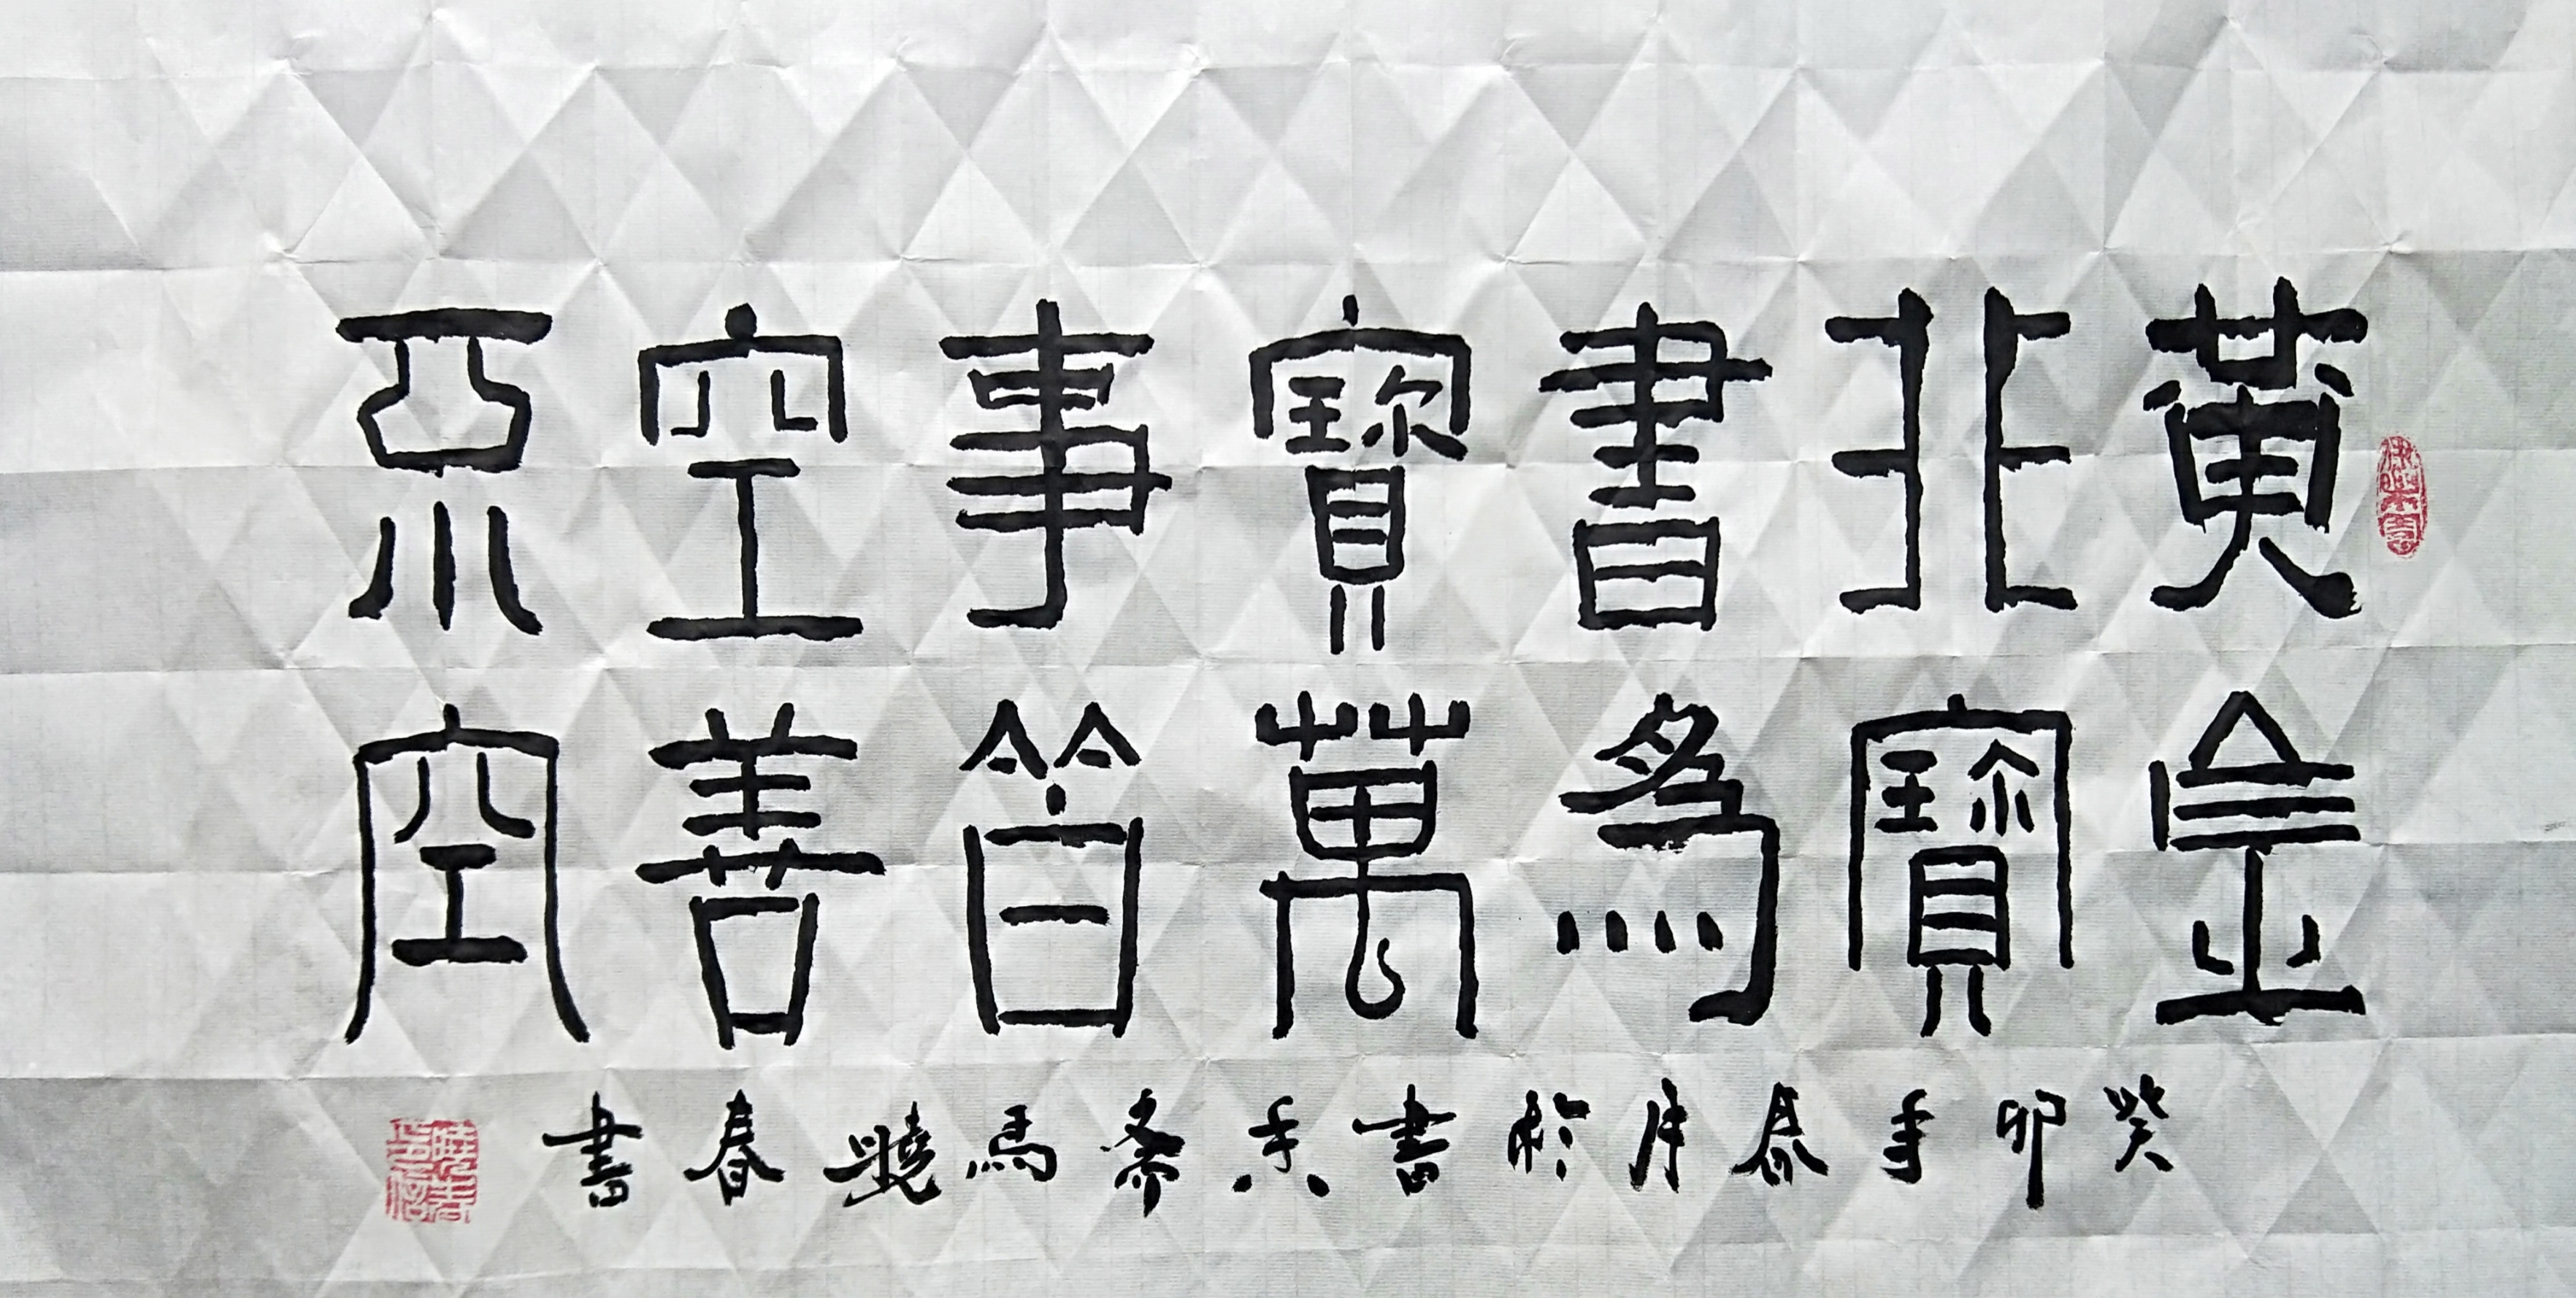 黄金
非寶
書為
寶萬
事皆
空善
不空
癸卯年春月於書香齋馬曉春書